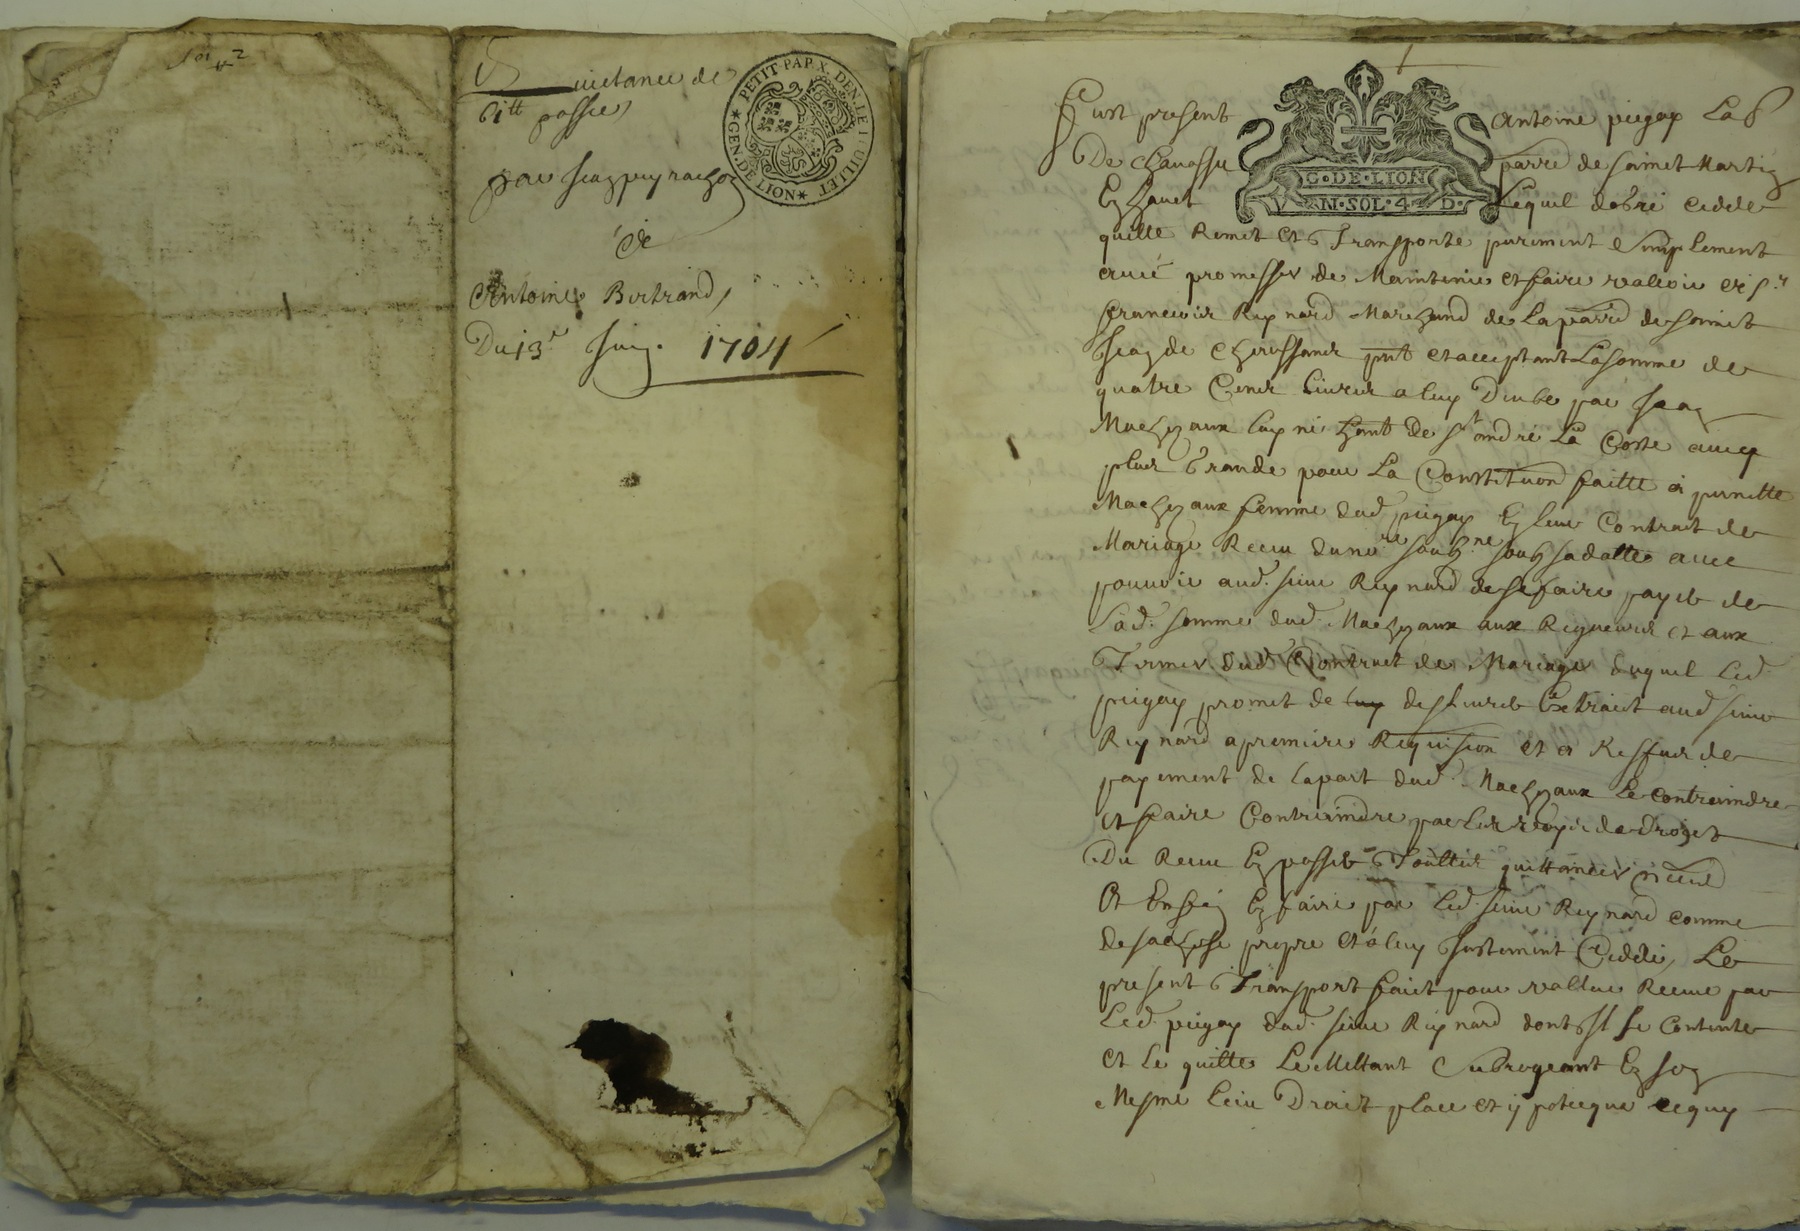 Quictance de
61tt passée
par Jean peyrachon
à
Antoine Bertrand,
Du 13e Juin 1704
PETIT PAP. X. DEN. LE FEUILLET
GEN. DE LION
Fust present Antoine peigay Lab
De chavassu parre de sainct Martin
En hault Lequel de gré cedde
G. DE LION
UN. SOL. 4. D.
quitte Remet et Transporte purement et simplement
avec promesses de Maintenir et faire valloir à Sr
francois Reynard Marchand de la parre de sainct
Jean de chaussand pnt et acceptant La somme de
quatre Cens Livres a luy Deube par Jean
de St andré La Coste avecq
plus Grande pour La Constitution faitte à pernette
femme dud peigay En leur Contract de
Mariage Receu du nore soubzne soubz sa datte avec
pouvoir aud. sieur Reynard de se faire payer de
Lad. somme dud. aux Rigueurs et aux
Termes dud Contract de Mariage duquel Led
peigay promet de luy deslivrer Extraict aud sieur
Reynard a premiere Requision et a Reffus de
payement de la part dud. Le contraindre
et faire Contraindre par les voyes de droict
Du Receu En passer Touttes quittances
Et Enfin En faire par Led. sieur Reynard comme
de sa chose propre et à luy Justement Ceddée, Le
present Transport faict pour valleur Receue par
Led. peigay dud. sieur Reynard dont Il se Contente
Et Le quitte Le Mettant Subrogeant En son
Mesme Lieu Droict place et ypoteque